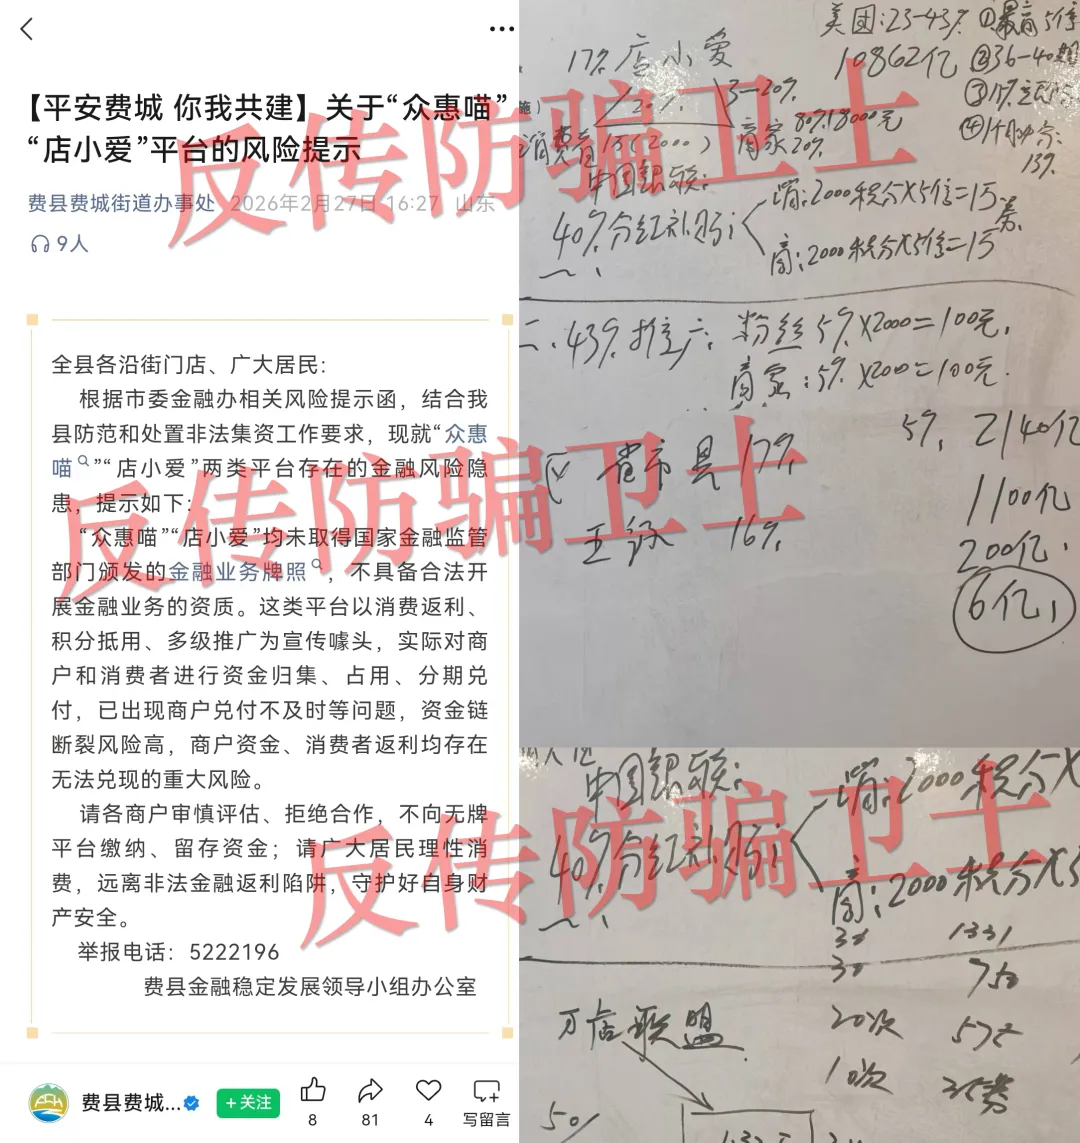 【平安费城 你我共建】关于“众惠喵”
“店小爱”平台的风险提示
费县费城街道办事处 2026年2月27日 16:27 山东
9人
全县各沿街门店、广大居民:
根据市委金融办相关风险提示函，结合我
县防范和处置非法集资工作要求，现就“众惠
喵”“店小爱”两类平台存在的金融风险隐
患，提示如下:
“众惠喵”“店小爱”均未取得国家金融监管
部门颁发的金融业务牌照，不具备合法开
展金融业务的资质。这类平台以消费返利、
积分抵用、多级推广为宣传噱头，实际对商
户和消费者进行资金归集、占用、分期兑
付，已出现商户兑付不及时等问题，资金链
断裂风险高，商户资金、消费者返利均存在
无法兑现的重大风险。
请各商户审慎评估、拒绝合作，不向无牌
平台缴纳、留存资金；请广大居民理性消
费，远离非法金融返利陷阱，守护好自身财
产安全。
举报电话：5222196
费县金融稳定发展领导小组办公室
费县费城...
+关注
8
81
4
写留言
美团:23-43% ①最高5倍
17% 店小爱
10862亿 ②36-40期
20% 3-20%
③17%
消费者15(2000) 商家20%
④1个月
13%
中国银联:
40%分红补贴:
消:2000积分×5倍=15
商:2000积分×5倍=15
二、43%推广: 粉丝5%×2000=100元.
商家:5%×2000=100元.
区 省市县17%
5% 2140亿
1100亿
200亿
6亿
16%
中国银联:
消:2000积分×
40%分红补贴:
商:2000积分×5
30 1331
30
20次
10次
万店联盟
50%
反传防骗卫士
反传防骗卫士
反传防骗卫士